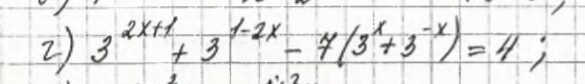 г) 3^{2x+1} + 3^{1-2x} - 7(3^x + 3^{-x}) = 4 ;